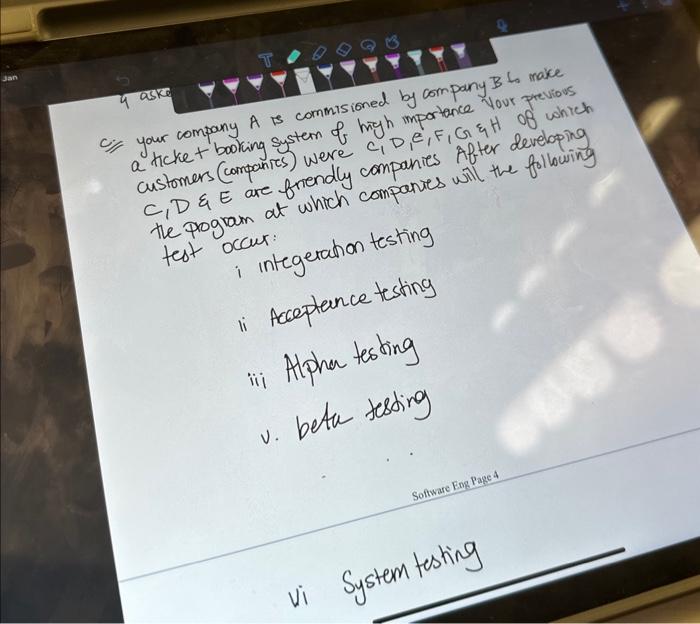 Jan
q aske
c, your company A is commisioned by company B to make
a ticket booking system of high importance Your previous
customers (companies) were C, D, E, F, G & H of which
C, D & E are friendly companies After developing
the program at which companies will the following
test occur:
i integeration testing
ii Acceptance testing
iii Alpha testing
v. beta testing
Software Eng Page 4
vi System testing